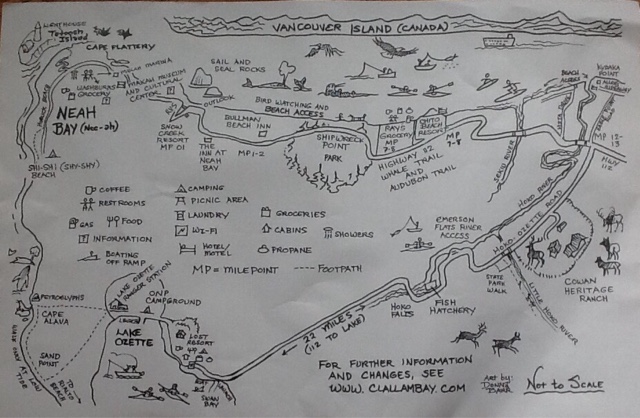 VANCOUVER ISLAND (CANADA)
LIGHT HOUSE
Tatoosh
Island
CAPE FLATTERY
MAKAH MARINA
MAKAH MUSEUM
AND CULTURAL
CENTER
WASHBURNS
GROCERY
NEAH
BAY (Nee-ah)
HOBUCK BEACH
SHI-SHI (SHY-SHY)
BEACH
SAIL AND
SEAL ROCKS
OUTLOOK
BIRD WATCHING AND
BEACH ACCESS
SNOW CREEK
RESORT
MP 01
THE
INN AT
NEAH
BAY
BULLMAN
BEACH INN
MP1-2
SHIPWRECK
POINT
PARK
RAYS
GROCERY
MP
7-8
CHITO
BEACH
RESORT
MP
7-8
HIGHWAY 112
WHALE TRAIL
AND
AUDUBON TRAIL
SEKIU RIVER
BEACH
ACCESS
KYDAKA
POINT
MP 12-
13
HWY
112
HOKO RIVER
HOKO OZETTE ROAD
EMERSON
FLATS RIVER
ACCESS
STATE
PARK
WALK
LITTLE HOKO RIVER
COWAN
HERITAGE
RANCH
COFFEE
RESTROOMS
GAS
FOOD
INFORMATION
BOATING
OFF RAMP
CAMPING
PICNIC AREA
LAUNDRY
WI-FI
HOTEL/
MOTEL
GROCERIES
CABINS
SHOWERS
PROPANE
MP = MILEPOINT
FOOTPATH
LAKE OZETTE
RANGER STATION
ONP
CAMPGROUND
PETROGLYPHS
CAPE
ALAVA
SAND
POINT
TO
RIALTO
BEACH
LAUNCH
LAKE
OZETTE
LOST
RESORT
SWAN
BAY
LAUNCH
22 MILES
(112 TO LAKE)
HOKO
FALLS
FISH
HATCHERY
FOR FURTHER INFORMATION
AND CHANGES, SEE
WWW. CLALLAMBAY.COM
Art by:
Not to Scale